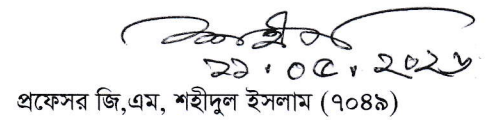 ২১.০৫.২০২৬
প্রফেসর জি,এম, শহীদুল ইসলাম (৭০৪৯)